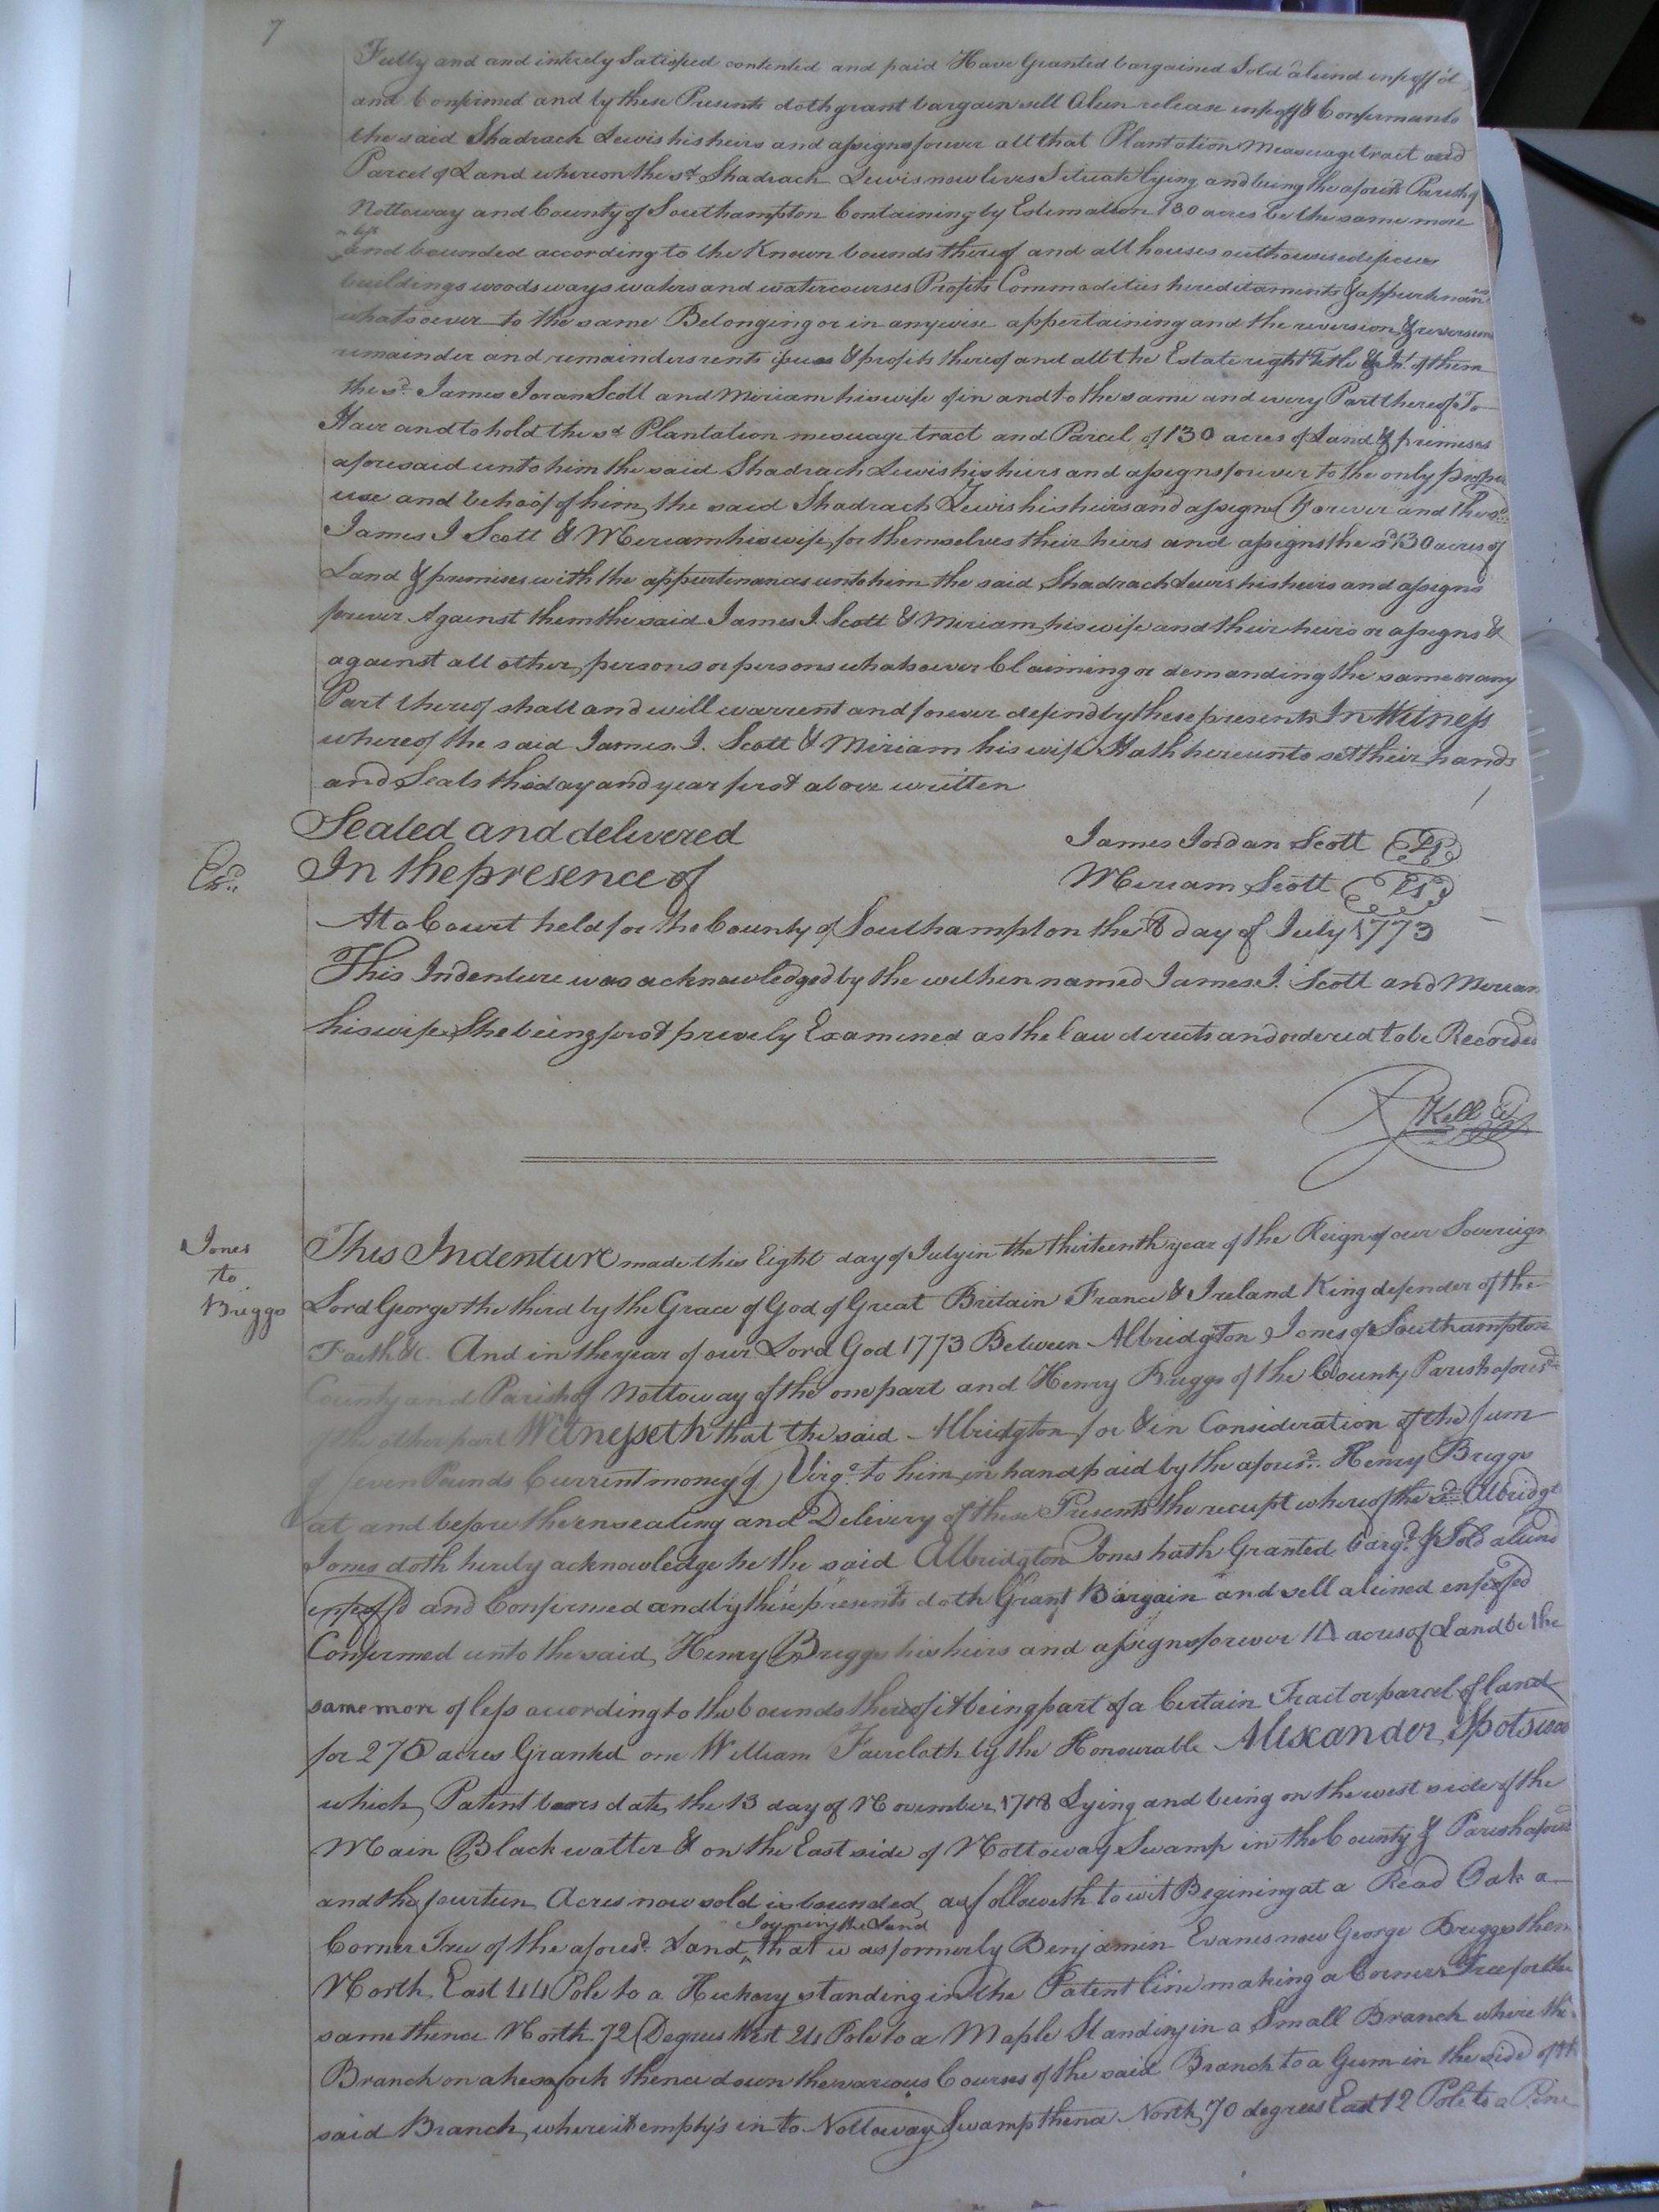 7
Fully and and intirely Satisfied contented and paid Have Granted bargained Sold aliend enfeoff'd
and Confirmed and by these Presents doth grant bargain sell Alien release enfeoff & Confirm unto
the said Shadrach Lewis his heirs and assigns forever all that Plantation Messuage tract and
Parcel of Land whereon the sd Shadrach Lewis now lives Situate lying and being the aforesd Parish of
Nottoway and County of Southampton Containing by Estimation 130 acres be the same more
or less
and bounded according to the Known bounds thereof and all houses outhouses edifices
buildings woods ways waters and watercourses Profits Commodities hereditaments & appurtenances
whatsoever to the same Belonging or in anywise appertaining and the reversion & reversions
remainder and remainders rents issues & profits thereof and all the Estate right Title & Int. of them
the sd. James Joran Scott and Miriam his wife of in and to the same and every Part thereof To
Have and to hold the sd Plantation mesuage tract and Parcel of 130 acres of Land & primises
aforesaid unto him the said Shadrach Lewis his heirs and assigns forever to the only proper
use and behoof of him, the said Shadrach Lewis his heirs and assigns Forever and the sd.
James J Scott & Meriam his wife, for themselves their heirs and assigns the sd 130 acres of
Land & premises with the appurtinances unto him the said Shadrach Lewis, his heirs and assigns
forever Against them the said James J. Scott & Miriam his wife and their heirs or assigns &
against all other persons or persons whatsoever Claiming or demanding the same or any
Part thereof shall and will warrent and forever defend by these presents In Witness
whereof the said James. J. Scott & Miriam his wife Hath hereunto set their hands
and Seals the day and year first above written
Sealed and delivered
James Jordan Scott LS
Ex..
In the presence of
Meriam Scott LS
At a Court held for the County of Southampton the 8 day of July 1773
This Indenture was acknowledged by the within named James. J. Scott and Meriam
his wife She being first privily Examined as the law directs and ordered to be Recorded
R Kell
Jones
to
Briggs
This Indenture made this Eight day of July in the thirteenth year of the Reign of our Sovereign
Lord George the third by the Grace of God of Great Britain France & Ireland King defender of the
Faith &c. And in the year of our Lord God 1773 Between Albridgton Jones of Southampton
County and Parish of Nottoway of the one part and Henry Briggs of the County Parish aforesd
of the other part Witnesseth that the said Albridgton for & in Consideration of the Sum
of Seven Pounds Current money of Virga. to him in hand paid by the aforesd. Henry Briggs
at and before the ensealing and Delivery of these Presents the receipt whereof the sd Albridgt
Jones doth herely acknowledge he the said Albridgton Jones hath Granted barg.d & Sold aliend
enfeoff'd and Confirmed and by these presents doth Grant Bargain and sell aliened enfeofed
Confermed unto the said, Henry Briggs his heirs and assigns forever 14 acres of Land be the
same more of less according to the bounds thereof it being part of a Certain Tract or parcel of land
for 275 acres Granted one William Faircloth by the Honourable Alexander Spotswoo
which, Patent bears date, the 13 day of November 1718 Lying and being on the west side of the
Main Black watter & on the East side of Nottoway Swamp in the County & Parish aforesd
and the fourteen Acres now sold is bounded, as followeth to wit Begining at a Read Oak a
Joyning the Land
Corner Tree of the aforesd. Land, that was formerly Benjamin Evanes now George Briggs then
North, East 44 Pole to a Hickory standing in the Patent line making a Corner Tree for the
same thence North 72 Degrees West 24 Pole to a Maple Standing in a Small Branch where the
Branch makes a fork thence down the various Courses of the said Branch to a Gum in the side of th
said Branch, where it emptys in to Nottoway Swamp thence North, 70 degrees East 12 Pole to a Pine